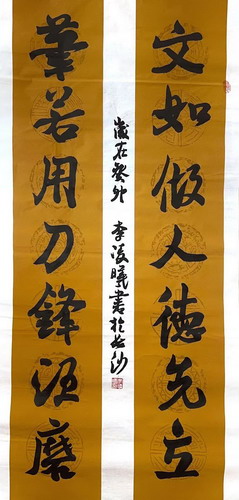 文如做人德先立
筆若用刀鋒磨
歲在癸卯 李凌曦書於長沙